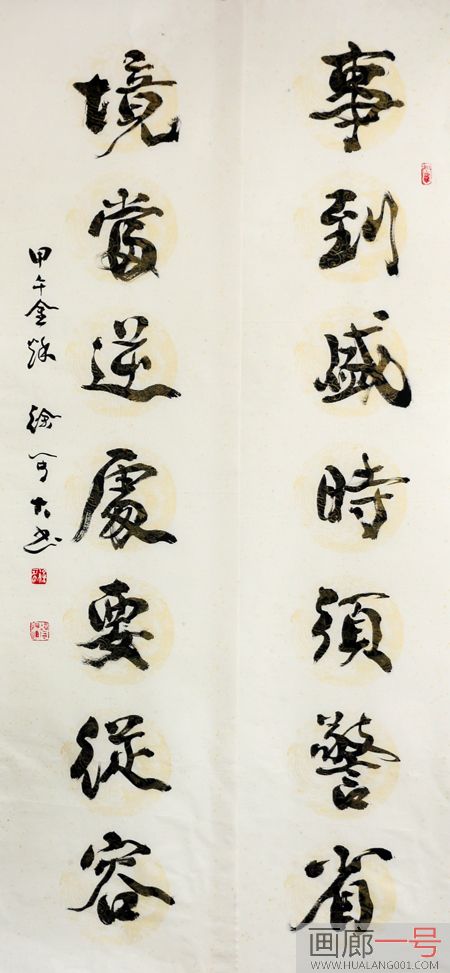 事到盛時須警省
境當逆處要從容
甲午金秋 徐可大書
画廊一号
WWW.HUALANG001.COM